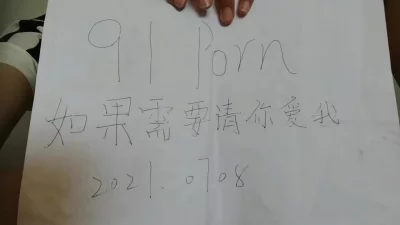 91 Porn
如果需要请你爱我
2021.0708